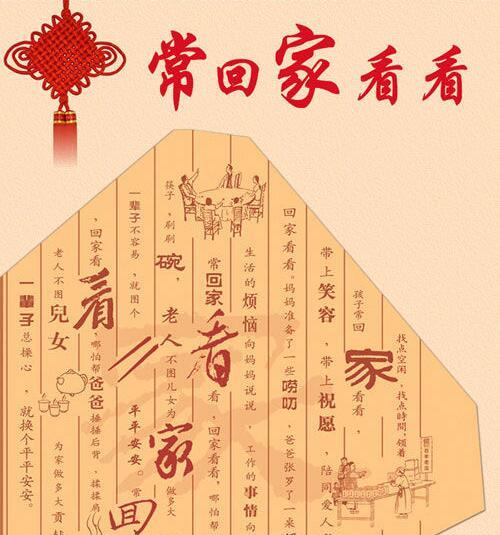 常回家看看
找点空闲，找点時間，領着
孩子常回家看看，
带上笑容，带上祝愿，陪同爱人
回家看看。妈妈准备了一些唠叨，爸爸张罗了一
生活的烦恼向妈妈说说，工作的事情向
常回家看看，回家看看，哪怕帮
筷子，刷刷碗，老人不图儿女为家做多大
一辈子不容易，就图个平平安安。常回
，回家看看，哪怕帮爸爸捶捶后背，揉揉肩
老人不图兒女为家做多大贡
一辈子总操心，就换个平平安安。